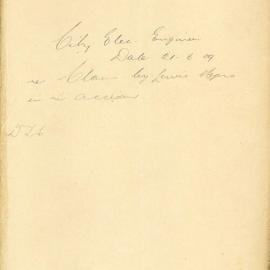 City Elec. Engineer
Date 21-6-09
re Claim by Lewis Myers
accident